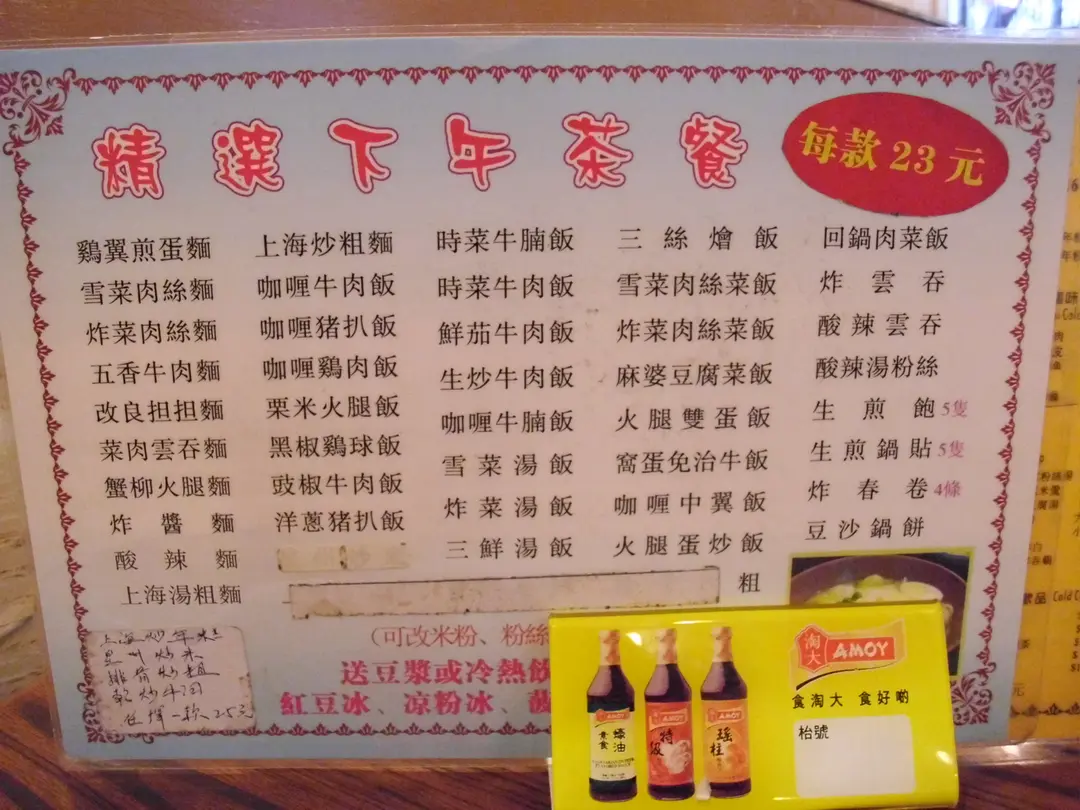 精選下午茶餐
每款23元
鷄翼煎蛋麵
雪菜肉絲麵
炸菜肉絲麵
五香牛肉麵
改良担担麵
菜肉雲吞麵
蟹柳火腿麵
炸醬麵
酸辣麵
上海湯粗麵
上海炒粗麵
咖喱牛肉飯
咖喱猪扒飯
咖喱鷄肉飯
栗米火腿飯
黑椒鷄球飯
豉椒牛肉飯
洋蔥猪扒飯
時菜牛腩飯
時菜牛肉飯
鮮茄牛肉飯
生炒牛肉飯
咖喱牛腩飯
雪菜湯飯
炸菜湯飯
三鮮湯飯
三絲燴飯
雪菜肉絲菜飯
炸菜肉絲菜飯
麻婆豆腐菜飯
火腿雙蛋飯
窩蛋免治牛飯
咖喱中翼飯
火腿蛋炒飯
回鍋肉菜飯
炸雲吞
酸辣雲吞
酸辣湯粉絲
生煎飽5隻
生煎鍋貼5隻
炸春卷4條
豆沙鍋餅
粗
(可改米粉、粉絲
送豆漿或冷熱飲
紅豆冰、凉粉冰、
上海炒年糕
星州炒米
乾炒牛河
任擇一款25元
淘大 AMOY
食淘大 食好啲
枱號
AMOY
素食
蠔油
AMOY
特級
AMOY
瑤柱